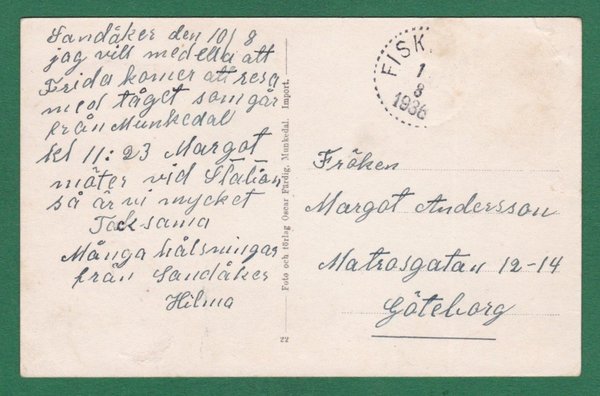 Sandåker den 10/8
jag vill medella att
Frida komer att resa
med tåget som går
från Munkedal
kl 11:23 Margot
möter vid Station
så är vi mycket
Tacksama
Många hälsningar
från Sandåker
Hilma
Foto och förlag Oscar Färdig, Munkedal. Import.
22
FISK
1
8
1936
Fröken
Margot Andersson
Matrosgatan 12-14
Göteborg